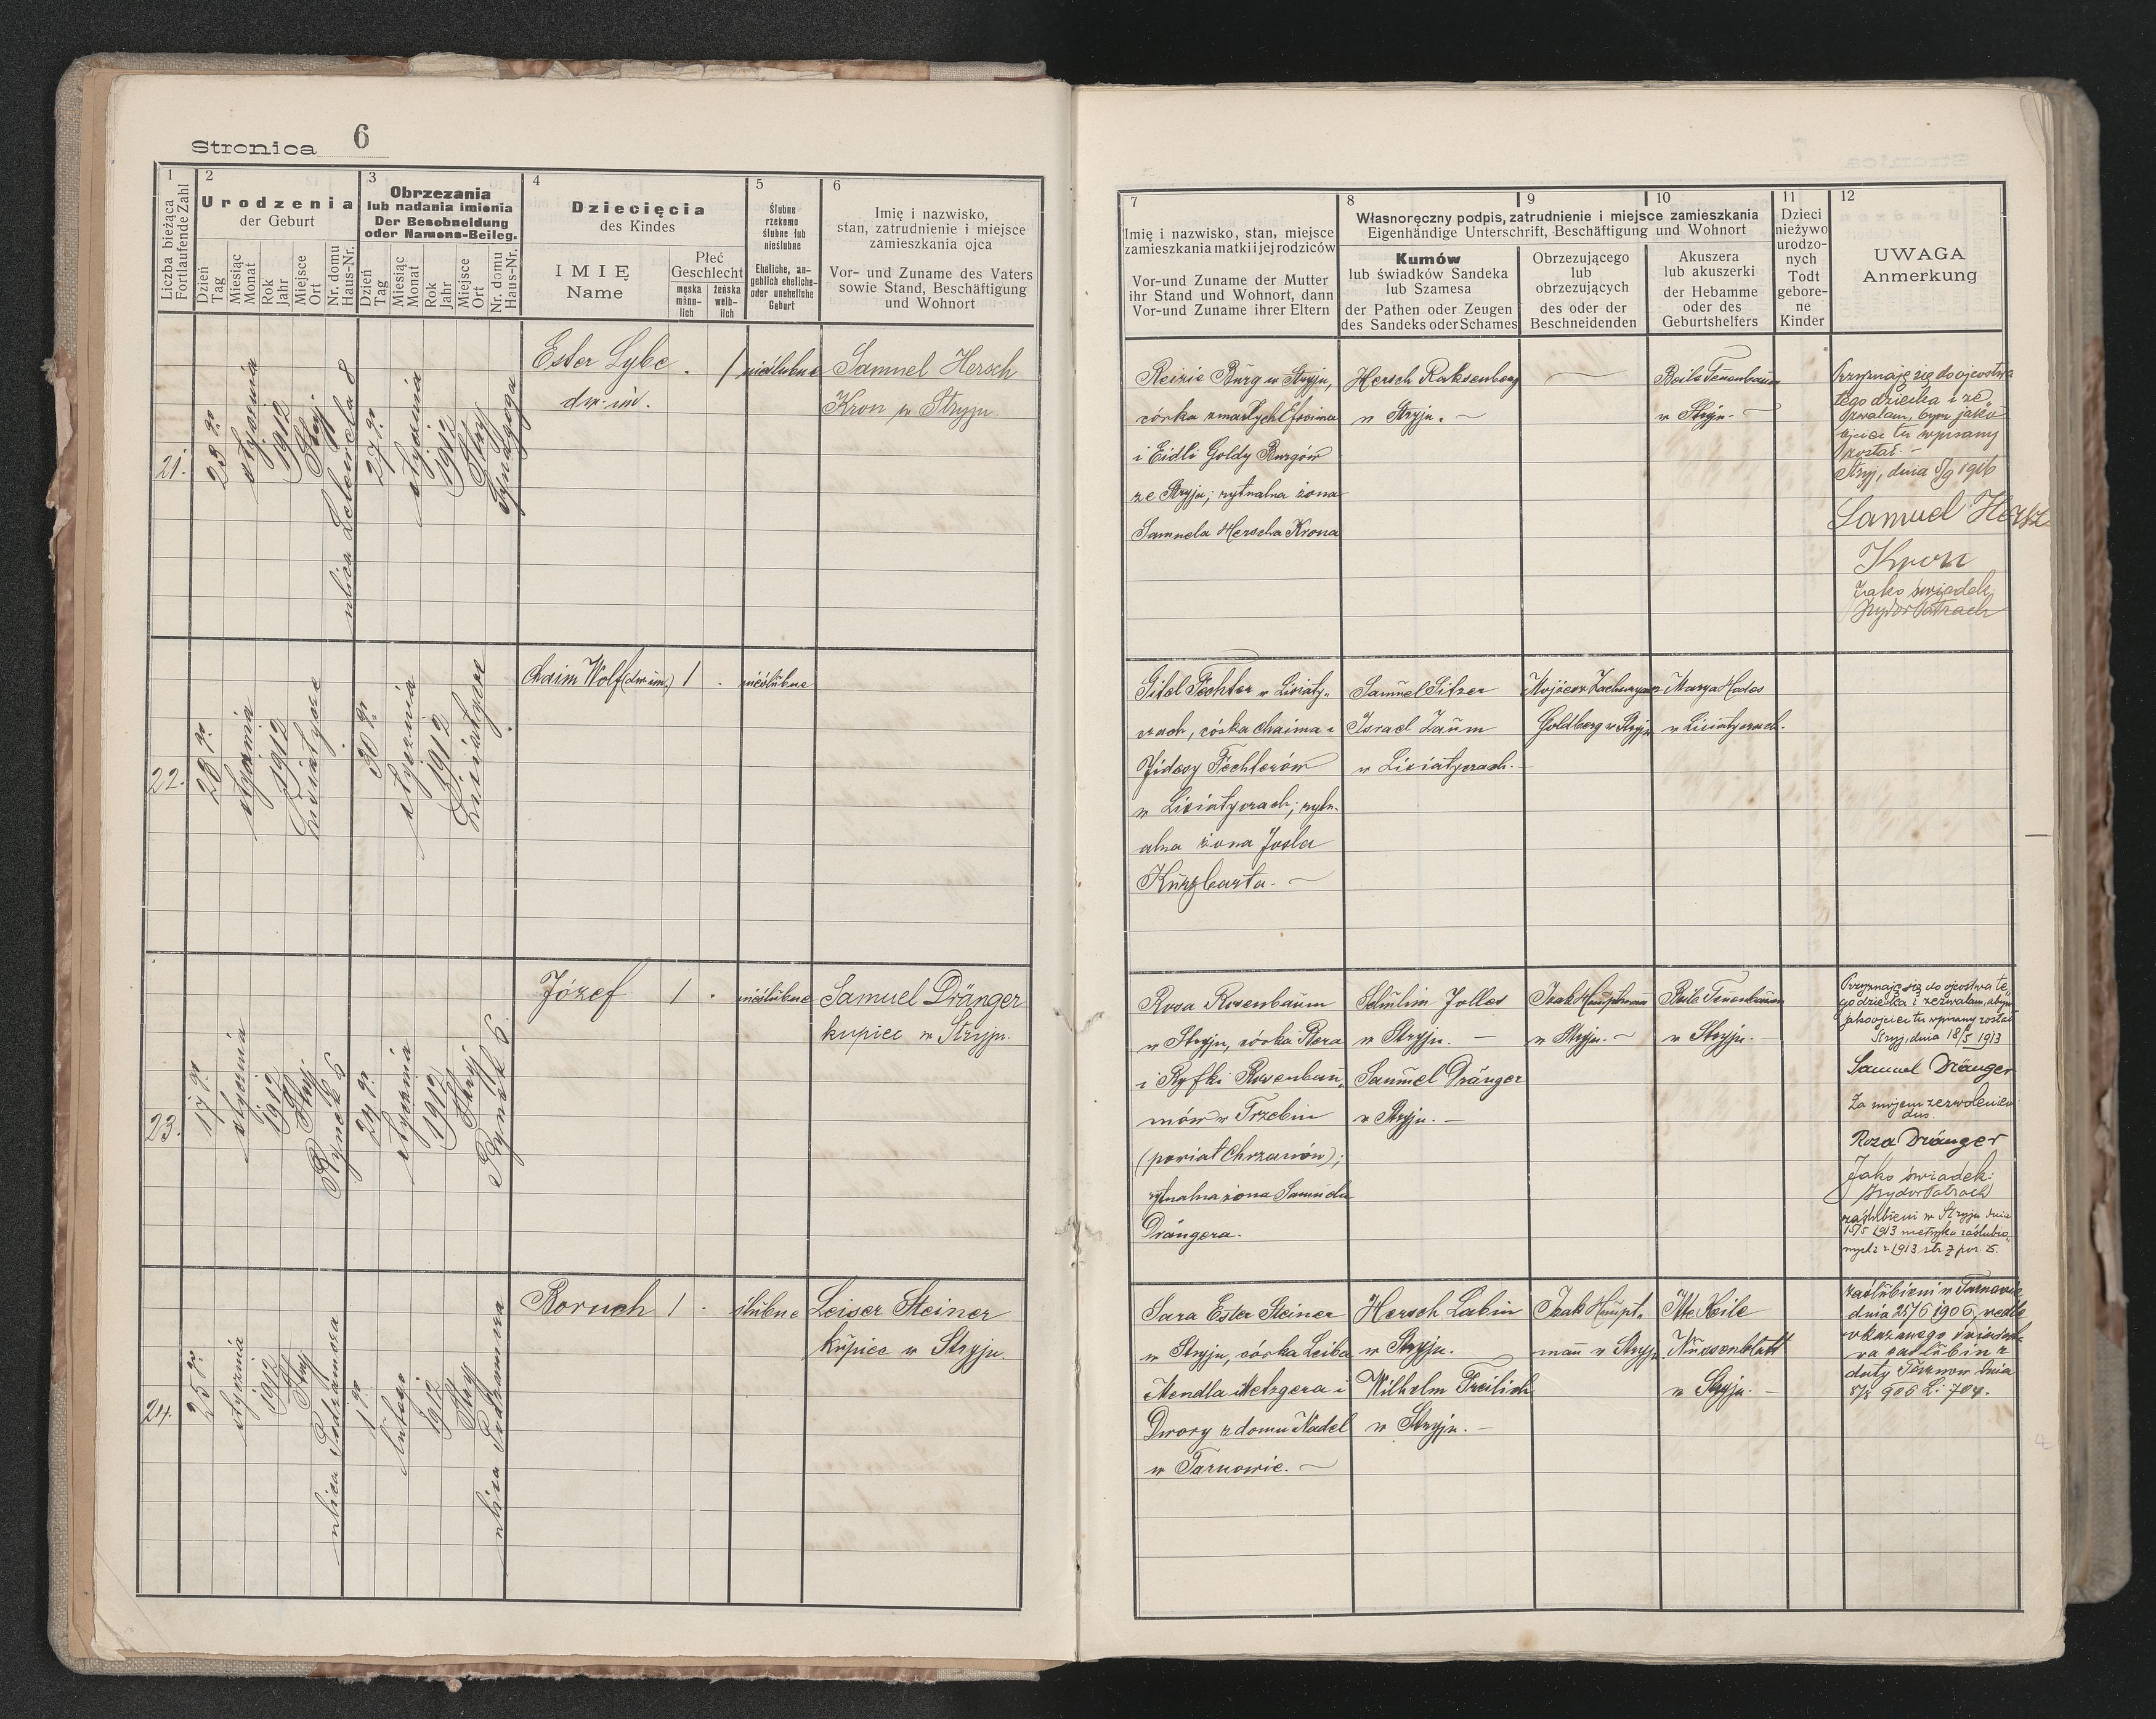 Stronica 6
1
Liczba bieżąca
Fortlaufende Zahl
2
Urodzenia
der Geburt
Dzień
Tag
Miesiąc
Monat
Rok
Jahr
Miejsce
Ort
Nr. domu
Haus-Nr.
3
Obrzezania
lub nadania imienia
Der Beschneidung
oder Namens-Beileg.
Dzień
Tag
Miesiąc
Monat
Rok
Jahr
Miejsce
Ort
Nr. domu
Haus-Nr.
4
Dziecięcia
des Kindes
IMIĘ
Name
Płeć
Geschlecht
męska
männ-
lich
żeńska
weib-
lich
5
Ślubne
rzekomo
ślubne lub
nieślubne
Eheliche, an-
geblich eheliche-
oder uneheliche
Geburt
6
Imię i nazwisko,
stan, zatrudnienie i miejsce
zamieszkania ojca
Vor- und Zuname des Vaters
sowie Stand, Beschäftigung
und Wohnort
7
Imię i nazwisko, stan, miejsce
zamieszkania matki i jej rodziców
Vor-und Zuname der Mutter
ihr Stand und Wohnort, dann
Vor-und Zuname ihrer Eltern
8
9
10
Własnoręczny podpis, zatrudnienie i miejsce zamieszkania
Eigenhändige Unterschrift, Beschäftigung und Wohnort
Kumów
lub świadków Sandeka
lub Szamesa
der Pathen oder Zeugen
des Sandeks oder Schames
Obrzezującego
lub
obrzezujących
des oder der
Beschneidenden
Akuszera
lub akuszerki
der Hebamme
oder des
Geburtshelfers
11
Dzieci
nieżywo
urodzo-
nych
Todt
gebore-
ne
Kinder
12
UWAGA
Anmerkung
21.
23go
stycznia
1912
Stryj
ulica Lelewela 8
27go
stycznia
1912
Stryj
Synagoga
Ester Lybe
dw. im.
. 1
nieślubne
Samuel Hersch
Kron w Stryju
Reizie Burg w Stryju,
córka zmarłych Efroima
i Eidli Goldy Burgów
ze Stryja; rytualna żona
Samuela Herscha Krona
Hersch Raksenberg
w Stryju.
Beile Tenenbaum
w Stryju.
Przyznaję się do ojcostwa
tego dziecka i ze-
zwalam, bym jako
ojciec tu wpisany
został.
Stryj, dnia 5/9 1916
Samuel Hersz
Kron
Jako świadek:
Izydor Patrach
22.
20go
stycznia
1912
Lisiatycze
30go
stycznia
1912
Lisiatycze
Chaim Wolf (dw. im.)
1 .
nieślubne
Sitel Fechter w Lisiaty-
czach, córka Chaima i
Jidesy Fechterów
w Lisiatyczach; rytu-
alna żona Josla
Kurzbarta.
Samuel Sitzer
Israel Zaum
w Lisiatyczach.
Mojżesz Zacharyasz
Goldberg w Stryju
Marya Hados
w Lisiatyczach.
23.
17go
stycznia
1912
Stryj
Rynek 6
24go
stycznia
1912
Stryj
Rynek 6
Józef
1 .
nieślubne
Samuel Dränger
kupiec w Stryju.
Rosa Rosenbaum
w Stryju, córka Bera
i Ryfki Rosenbau-
mów w Trzebini
(powiat Chrzanów);
rytualna żona Samuela
Drängera.
Schulim Jolles
w Stryju.
Samuel Dränger
w Stryju.
Isak Hauptmann
w Stryju.
Beile Tenenbaum
w Stryju.
Przyznaję się do ojcostwa te-
go dziecka i zezwalam, abym
jako ojciec tu wpisany został
Stryj, dnia 18/5 1913
Samuel Dränger
Za mojem zezwoleniem
Rosa Dränger
Jako świadek:
Izydor Patrach
zaślubieni w Stryju dnia
18/5 1913 metryka zaślubio-
nych z r. 1913 str. 7 poz. 25.
24.
25go
stycznia
1912
Stryj
ulica Podzamcza
1go
lutego
1912
Stryj
ulica Podzamcza
Boruch
1 .
ślubne
Leiser Steiner
kupiec w Stryju.
Sara Ester Steiner
w Stryju, córka Leiba
Mendla Metzgera i
Dwory z domu Nadel
w Tarnowie.
Hersch Labin
w Stryju.
Wilhelm Freilich
w Stryju.
Isak Haupt-
mann w Stryju
Itte Keile
Nussenblatt
w Stryju.
zaślubieni w Tarnowie
dnia 25/6 1906, wedle
okazanego świadec-
twa zaślubin z
daty Tarnów dnia
5/8 906 L: 704.